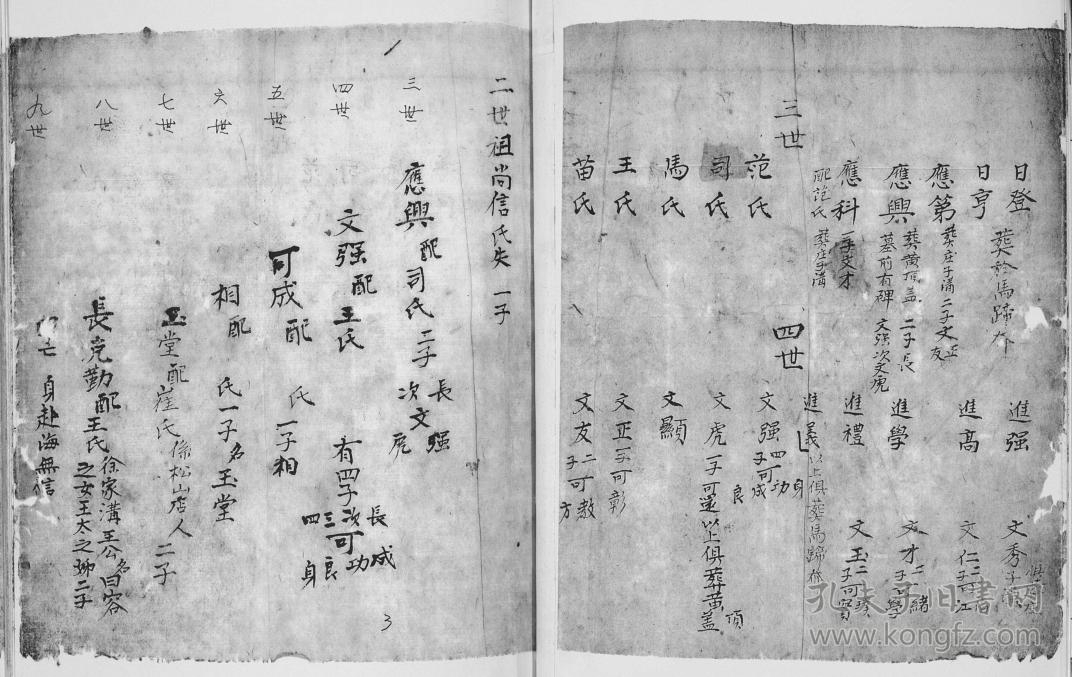 三世
日登 葬於馬蹄夼
日亨
應第 葬庄子溝 二子文正 友
應興 葬黄頂盖 二子長 墓前有碑 文强次文虎
應科 一子文才
配范氏 葬庄子溝
范氏
司氏
馬氏
王氏
苗氏
四世
進强
進高
進學
進禮
進義 以上俱葬馬蹄夼
文强 四子可成 功 良 身
文虎 一子可運 以上俱葬黄盖頂
文顯
文正 一子可彰
文友 二子可教 方
文秀
文仁
文才 二子 緒 學
文玉 二子可
二世祖尚信氏失 一子
三世 應興配司氏 二子 長文强 次虎
四世 文强配王氏 有四子 長可成 次功 三良 四身
五世 可成配 氏 一子相
六世 相配 氏一子名玉堂
七世 玉堂配崔氏係松山店人 二子
八世 長克勤配王氏 徐家溝王公名曰容之女王大之姉二子
九世 亡 身赴海無信
3
孔夫子旧书网
www.kongfz.com